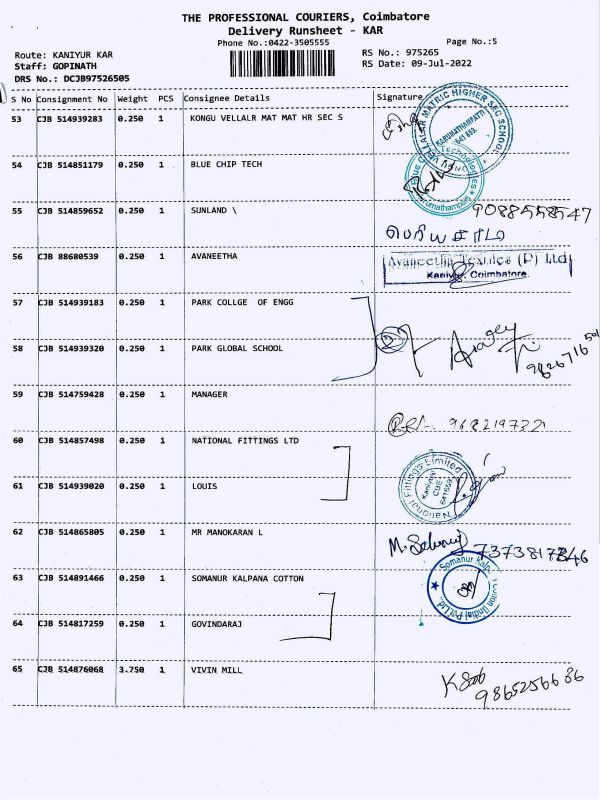 THE PROFESSIONAL COURIERS, Coimbatore
Delivery Runsheet - KAR
Phone No.:0422-3505555
Page No.:5
Route: KANIYUR KAR
RS No.: 975265
Staff: GOPINATH
RS Date: 09-Jul-2022
DRS No.: DCJB97526505
S No Consignment No Weight PCS Consignee Details Signature
53 CJB 514939283 0.250 1 KONGU VELLALR MAT MAT HR SEC S
54 CJB 514851179 0.250 1 BLUE CHIP TECH
55 CJB 514859652 0.250 1 SUNLAND \ 9088558547
பெரியசாமி
56 CJB 88680539 0.250 1 AVANEETHA Avaneetha Textiles (P) Ltd
Kaniyur, Coimbatore.
57 CJB 514939183 0.250 1 PARK COLLGE OF ENGG
58 CJB 514939320 0.250 1 PARK GLOBAL SCHOOL
59 CJB 514759428 0.250 1 MANAGER
60 CJB 514857498 0.250 1 NATIONAL FITTINGS LTD
National Fittings Limited
Kaniyur
CBE.
641659
61 CJB 514939020 0.250 1 LOUIS
62 CJB 514865805 0.250 1 MR MANOKARAN L 7373817346
63 CJB 514891466 0.250 1 SOMANUR KALPANA COTTON
64 CJB 514817259 0.250 1 GOVINDARAJ
65 CJB 514876068 3.750 1 VIVIN MILL
9865256686